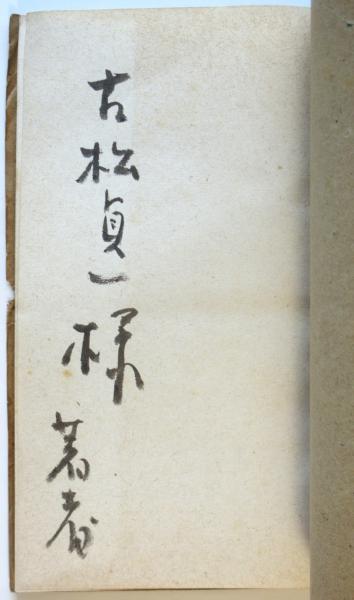 古松貞一様
著者